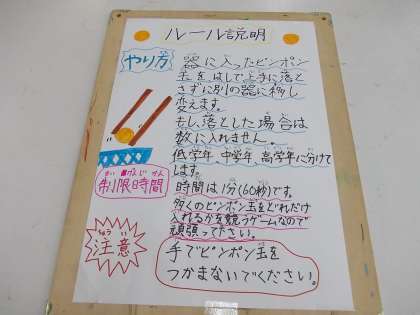 ルール説明
やり方
器に入ったピンポン
玉を、はしで上手に落と
さずに別の器に移し
変えます。
もし、落とした場合は
数に入れません。
低学年、中学年、高学年に分けて
します。
制限時間
時間は1分(60秒)です。
多くのピンポン玉をどれだけ
入れるかを競うゲームなので
頑張って下さい。
ちゅうい
注意
手でピンポン玉を
つかまないでください。